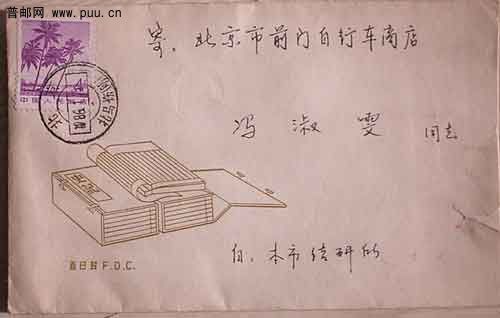 普邮网
www.puu.cn
寄，北京市前门自行车商店
冯淑雯 同志
自，本市
首日封 F.D.C.